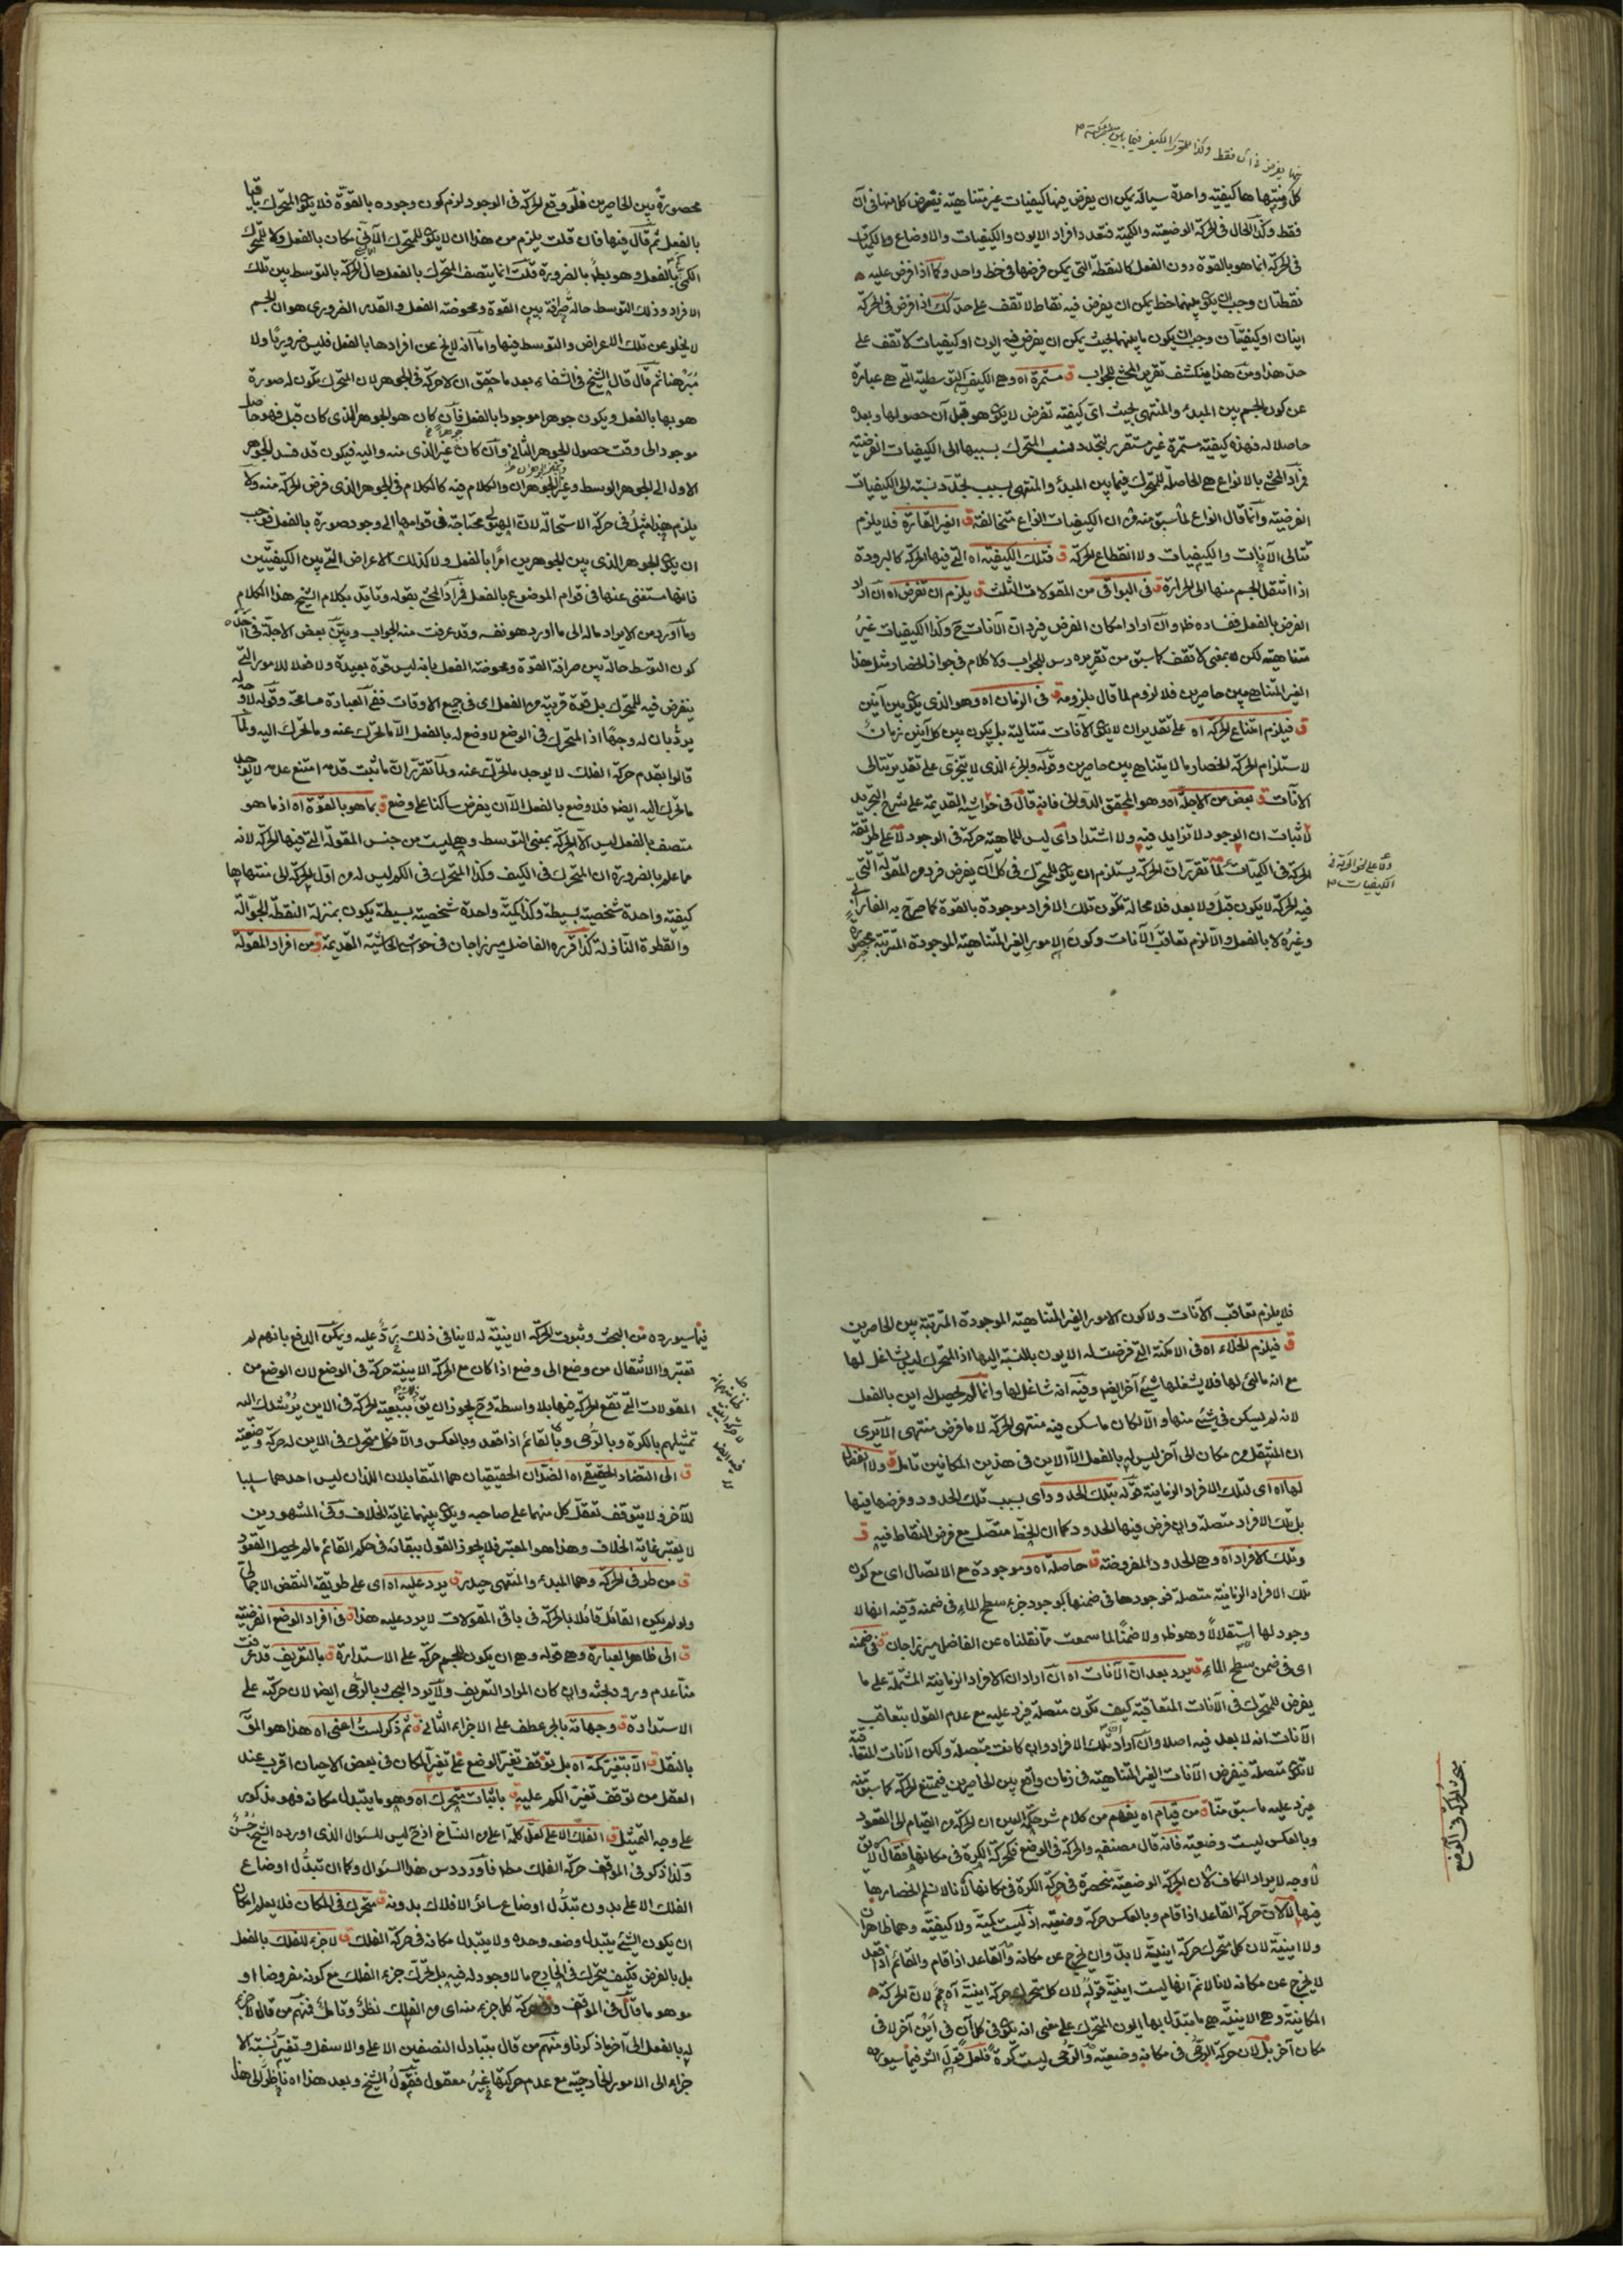 كل منتهاها كيفية واحدة سيالة يمكن ان يفرض فيها كيفيات غير متناهية يفرض كل منها فى آن
فقط وكذا الحال فى الحركة الوضعية والكمية فتعدد افراد الايون والكيفيات والاوضاع والكميات
فى الحركة انما هو بالقوة دون الفعل كالنقطة التى يمكن فرضها فى خط واحد وكما اذا فرض عليه
نقطتان وجب ان يكون بينهما خط يمكن ان يفرض فيه نقاط لا تقف على حد كك اذا فرض فى الحركة
اينان او كيفيتان وجب ان يكون ما بينهما بحيث يمكن ان يفرض فيه ايون او كيفيات لا تقف على
حد هذا ومن هذا ينكشف تقرير المحشى للجواب ق مستمرة اه وهى الكيف التوسطية التى هى عبارة
عن كون الجسم بين المبدء والمنتهى بحيث اى كيفية تفرض لا يكون هو قبل آن حصولها وبعده
حاصلا له فهذه كيفية مستمرة غير مستقرة لتجدد نسب المتحرك بسببها الى الكيفيات الفرضية
فمراد المحشى بالانواع هى الحاصلة للمتحرك فيما بين المبدء والمنتهى بسبب تجدد نسبته الى الكيفيات
الفرضية وانما قال انواع لما سبق منه ان الكيفيات انواع متخالفة ق الغير القارة فلا يلزم
تتالى الآنات والكيفيات ولا انقطاع الحركة ق فتلك الكيفية اه التى فيها الحركة كالبرودة
اذا انتقل الجسم منها الى الحرارة ق فى البواقى من المقولات الثلث ق يلزم ان تفرض اه ان اراد
الفرض بالفعل ففساده ظ وان اراد امكان الفرض فيرد ان الآنات ح وكذا الكيفيات غير
متناهية لكن بمعنى لا تقف كما سبق من تقريره دس للجواب ولا كلام فى جواز انحصار مثل هذا
الغير المتناهى بين حاصرين فلا لزوم لما قال بلزومه ق فى الزمان اه وهو الذى يكون بين آنين
ق فيلزم امتناع الحركة اه على تقدير ان لا يكون الآنات متتالية بل يكون بين كل آنين زمان
لاستلزام الحركة انحصار ما لا يتناهى بين حاصرين وقوله والجزء الذى لا يتجزى على تقدير تتالى
الآنات ق بعض من الاجلة اه وهو المحقق الدوانى فانه قال فى حواشيه القديمة على شرح التجريد
لاثبات ان الوجود لا تزايد فيه ولا اشتداد اى ليس للماهية حركة فى الوجود لا على طريقة
الحركة فى الكميات لما تقرر ان الحركة يستلزم ان يكون للمتحرك فى كل آن يفرض فرد من المقولة التى
فيه الحركة لا يكون قبل ولا بعد فلا محالة تكون تلك الافراد موجودة بالقوة كما صرح به الفارابى
وغيره لا بالفعل والا لزم تعاقب الآنات وكون الامور الغير المتناهية الموجودة المترتبة محصورة
ولا على نحو الحركة فى
الكيفيات
محصورة بين الحاصرين فلو وقع الحركة فى الوجود لزم كون وجوده بالقوة فلا يكون المتحرك باقيا
بالفعل ثم قال فيها فان قلت يلزم من هذا ان لا يكون للمتحرك الآنى مكان بالفعل ولا للمتحرك
الكمى بالفعل وهو بط بالضرورة قلت انما يتصف المتحرك بالفعل حال الحركة بالتوسط بين تلك
الافراد وذلك التوسط حالة صرافة بين القوة ومحوضة الفعل والقدر الضرورى هو ان الجسم
لا يخلو عن تلك الاعراض والتوسط فيها واما انه لا يخ عن افرادها بالفعل فليس ضروريا ولا
مبرهنا ثم قال قال الشيخ فى الشفاء بعد ما حقق ان لا حركة فى الجوهر لان المتحرك تكون له صورة
هو بها بالفعل ويكون جوهرا موجودا بالفعل فان كان هو الجوهر الذى كان قبل فهو حاصل
موجود الى وقت حصول الجوهر الثانى وان كان غير الذى منه واليه فيكون قد فسد الجوهر
الاول الى الجوهر الوسط وغير الجوهران والكلام فيه كالكلام فى الجوهر الذى فرض الحركة منه ولا
يلزم هذا مثل فى حركة الاستحالة لان الهيولى محتاجة فى قوامها الى وجود صورة بالفعل فيجب
ان يكون الجوهر الذى بين الجوهرين امرا بالفعل ولا كذلك الاعراض التى بين الكيفيتين
فانها مستغنى عنها فى قوام الموضوع بالفعل فمراد المحشى بقوله وتايد بكلام الشيخ هذا الكلام
وما اورد من الايراد ماله الى ما اورد هو نفسه وقد عرفت منه الجواب وبين بعض الاجلة فى
كون التوسط حالة بين صرافة القوة ومحوضة الفعل بانه ليس قوة بعيدة ولا فعلا للامور التى
يفرض فيه للمتحرك بل قوة قريبة من الفعل اى فى جميع الاوقات ففى العبارة مسامحة وقوله لا و
يرد بان له وجها اذ المتحرك فى الوضع لا وضع له بالفعل الا ما تحرك عنه وما تحرك اليه ولما
قالوا بقدم حركة الفلك لا يوجد ما تحرك عنه ولما تقرر ان ما ثبت قدمه امتنع عدمه لا يوجد
ما تحرك اليه ايضا فلا وضع بالفعل الا ان يفرض ساكنا على وضع ق بما هو بالقوة اه اذ ما هو
متصف بالفعل ليس الا الحركة بمعنى التوسط وهى ليست من جنس المقولة التى فيها الحركة لانه
مما علم بالضرورة ان المتحرك فى الكيف وكذا المتحرك فى الكم ليس له من اول الحركة الى منتهاها
كيفية واحدة شخصية بسيطة وكذا كمية واحدة شخصية بسيطة يكون بمنزلة النقطة الجوالة
والقطرة النازلة كذا قرره الفاضل ميرزاجان فى حواشى الحاشية القديمة ق من افراد المقولة
فلا يلزم تعاقب الآنات ولا كون الامور الغير المتناهية الموجودة المترتبة بين الحاصرين
ق فيلزم الخلاء اه فى الامكنة التى فرضت له الايون بالنسبة اليها اذ المتحرك ليس شاغل لها
مع انه مالئ لها فلا يشغلها شيئ آخر ايضا وفيه انه شاغل لها وانما لم يحصل له اين بالفعل
لانه لم يسكن فى شيئ منها والا لكان ما سكن فيه منتهى الحركة لا ما فرض منتهى الا يرى
ان المنتقل من مكان الى آخر ليس له بالفعل الا الاين فى هذين المكانين تامل ق ولا انقطاع
لها اه اى لتلك الافراد الزمانية قوله بتلك الحدود اى بسبب تلك الحدود وفرضها فيها
بل تلك الافراد متصلة وان فرض فيها الحدود كما ان الخط متصل مع فرض النقاط فيه ق
وتلك الافراد اه وهى الحدود المفروضة ق حاصلة اه وموجودة مع الاتصال اى مع كون
تلك الافراد الزمانية متصلة فوجودها فى ضمنها كوجود جزء سطح الماء فى ضمنه وفيه انها لا
وجود لها استقلالا وهو ظ ولا ضمنا لما سمعت مما نقلناه عن الفاضل ميرزاجان ق فى ضمنه
اى فى ضمن سطح الماء ق يرد بعد ان الآنات اه ان اراد ان الافراد الزمانية المشتملة على ما
يفرض للمتحرك فى الآنات المتعاقبة كيف تكون متصلة فيرد عليه مع عدم القول بتعاقب
الآنات انه لا بعد فيه اصلا وان اراد ان تلك الافراد وان كانت متصلة ولكن الآنات المتعاقبة
لا تكون متصلة فيفرض الآنات الغير المتناهية فى زمان واقع بين الحاصرين فيمتنع الحركة كما سبق منه
فيرد عليه ما سبق منا ق من قيام اه يفهم من كلام شرح حكمة العين ان الحركة من القيام الى القعود
وبالعكس ليست وضعية فانه قال مصنفه والحركة فى الوضع كحركة الكرة فى مكانها فقال لا يق
لا وجه لايراد الكاف لان الحركة الوضعية منحصرة فى حركة الكرة فى مكانها لانا لا نسلم انحصارها
فيها لان حركة القاعد اذا قام وبالعكس حركة وضعية اذ ليست كمية ولا كيفية وهما ظاهران
ولا اينية لان كل متحرك حركة اينية لا بد وان يخرج عن مكانه والقاعد اذا قام والقائم اذا قعد
لا يخرج عن مكانه لانا لا نم انها ليست اينية قوله لان كل متحرك حركة اينية اه مم لان الحركة
المكانية وهى الاينية هى ما يتبدل بها ايون المتحرك على معنى انه يكون فى كل آن فى اين آخر لا فى
مكان آخر بل لان حركة الرحى فى مكانه وضعية والرحى ليست كرة
بحث الحركة فى الوضع
فيما سيورده من البحث وثبوت الحركة الاينية له لا ينافى ذلك يرد عليه ويمكن الدفع بانهم لم
تعتبروا الانتقال من وضع الى وضع اذا كان مع الحركة الاينية حركة فى الوضع لان الوضع من
المقولات التى تقع الحركة فيها بلا واسطة وح يجوز ان يق بتبعية الحركة فى الاين يرشدك اليه
تمثيلهم بالكرة وبالرحى وبالقائم اذا قعد وبالعكس والا فكل متحرك فى الاين له حركة وضعية
ق الى التضاد الحقيقى اه الضدان الحقيقيان هما المتقابلان اللذان ليس احدهما سلبا
للآخر ولا يتوقف تعقل كل منهما على صاحبه ويكون بينهما غاية الخلاف وفى المشهورين
لا يعتبر غاية الخلاف وهذا هو المعتبر فلا يجوز القول ببقائه فى حكم القائم ما لم يحصل القعود
ق من طرفى الحركة وهما المبدء والمنتهى ق يرد عليه اه اى على طريقة النقض الاجمالى
ولو لم يكن القائل قائلا بالحركة فى باقى المقولات لا يرد عليه هذا ق فى افراد الوضع الفرضية
ق الى ظاهر العبارة وهى قوله وهى ان يكون للجسم حركة على الاستدارة ق بالتعريف قد عرفت
منا عدم ورود بحثه وان كان المراد التعريف ولا يرد البحث بالرحى ايضا لان حركته على
الاستدارة ق وجهاته بالجر عطف على الاجزاء التالى ق ثم ذكر لست اعنى اه هذا هو المق
بالنقل ق الا بتغيركه اه بل توقف تغير الوضع على تغير المكان فى بعض الاحيان اقرب عند
العقل من توقف تغير الكم عليه ق باثبات متحرك اه وهو ما يتبدل مكانه فهو مذكور
على وجه التمثيل ق الفلك الاعلى لعل كلمة اعلى من النساخ اذ ح ليس للسؤال الذى اورده الشيخ حسن
ولذا ذكر فى الموقف حركة الفلك مط فاورد دس هذا السؤال وكما ان تبدل اوضاع
الفلك الاعلى بدون تبدل اوضاع سائر الافلاك بدونه ق متحرك فى المكان فلا يعلم امكان
ان يكون الشيئ يتبدل وضعه وحده ولا يتبدل مكانه فى حركة الفلك ق لا جزء للفلك بالفعل
بل بالفرض فكيف يتحرك فى الخارج ما لا وجود له فيه بل تحرك جزء الفلك مع كونه مفروضا او
موهوما قال فى الموقف وفى حركة كل جزء منه اى من الفلك نظر وتامل فمنهم من قال لا جزء
له بالفعل الى آخر ما ذكرنا ومنهم من قال بتبادل النصفين الاعلى والاسفل وتغير نسبة الا
جزاء الى الامور الخارجية مع عدم حركتها غير معقول فقول الشيخ وبعد هذا اه ناظر الى هذا